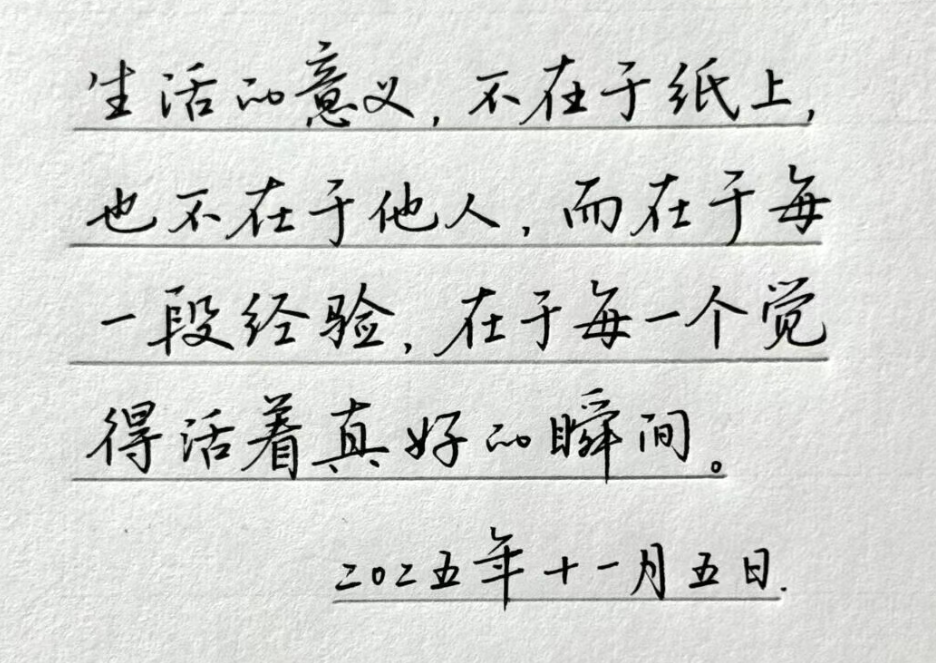 生活的意义,不在于纸上,
也不在于他人,而在于每
一段经验,在于每一个觉
得活着真好的瞬间。
二〇二五年十一月五日.